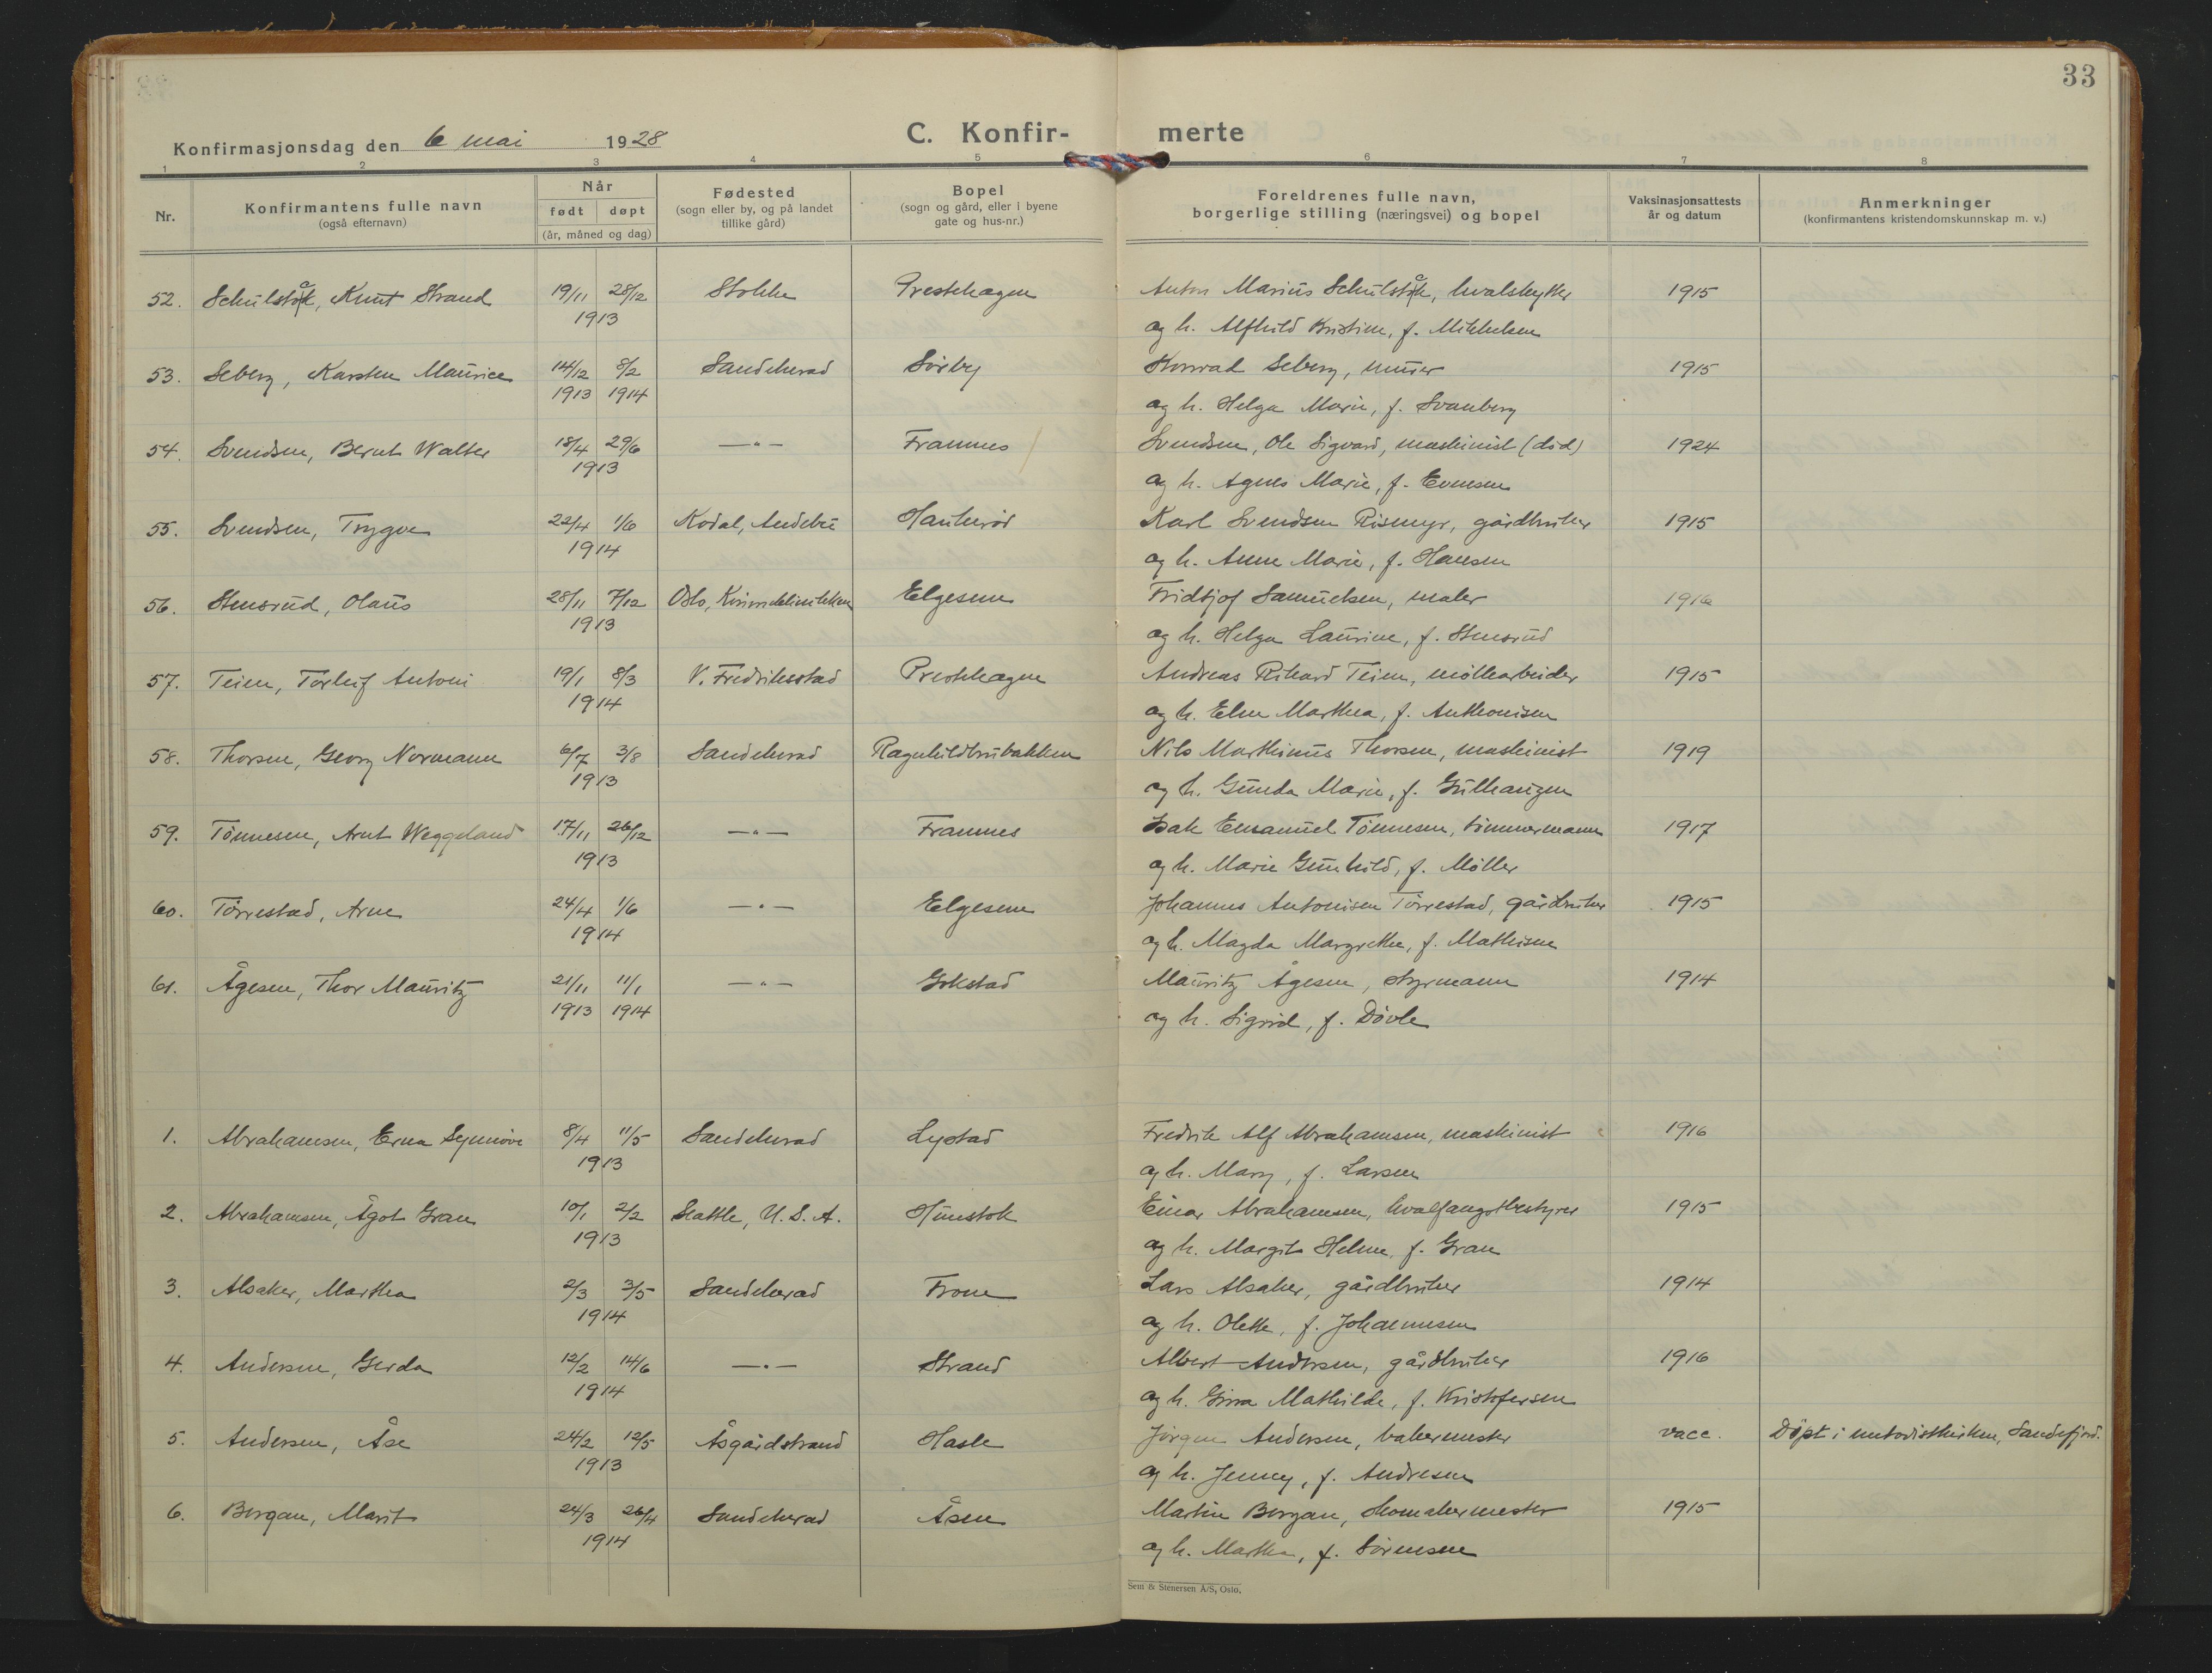 33
Konfirmasjonsdag den 6 mai 1928
C. Konfir- merte
1 2 3 4 5 6 7 8
Nr.
Konfirmantens fulle navn
(også efternavn)
Når
født døpt
(år, måned og dag)
Fødested
(sogn eller by, og på landet
tillike gård)
Bopel
(sogn og gård, eller i byene
gate og hus-nr.)
Foreldrenes fulle navn,
borgerlige stilling (næringsvei) og bopel
Vaksinasjonsattests
år og datum
Anmerkninger
(konfirmantens kristendomskunnskap m. v.)
52. Schulståk, Knut Strand 19/11 28/12 Stokke Prestehagen Anton Marius Schulståk, hvalskytter 1915
1913 og h. Alfhild Kristine, f. Mikkelsen
53. Seberg, Karsten Maurice 14/12 8/2 Sandeherad Sørby Konrad Seberg, murer 1915
1913 1914 og h. Helga Marie, f. Svanberg
54. Svendsen, Bernt Walter 18/4 29/6 —"— Framnes Svendsen, Ole Sigvard, maskinist (død) 1924
1913 og h. Agnes Marie, f. Evensen
55. Svendsen, Trygve 22/4 1/6 Kodal, Andebu Haukerød Karl Svendsen Rismyr, gårdbruker 1915
1914 og h. Anne Marie, f. Hansen
56. Stensrud, Olaus 28/11 7/12 Oslo, Kvinneklinikken Elgesem Fridtjof Samuelsen, maler 1916
1913 og h. Helga Laurine, f. Stensrud
57. Teien, Torleif Antoni 19/1 8/3 V. Fredriksstad Prestehagen Andreas Rikard Teien, møllearbeider 1915
1914 og h. Elen Marthea, f. Anthonisen
58. Thorsen, Georg Normann 6/7 3/8 Sandeherad Ragnhildbrubakken Nils Marthinus Thorsen, maskinist 1919
1913 og h. Gunda Marie, f. Gulhaugen
59. Tønnesen, Arnt Weggeland 17/11 26/12 —"— Framnes Isak Emanuel Tønnesen, tømmermann 1917
1913 og h. Marie Gunhild, f. Møller
60. Tørrestad, Arne 24/4 1/6 —"— Elgesem Johannes Antonisen Tørrestad, gårdbruker 1915
1914 og h. Magda Margrethe, f. Mathisen
61. Ågesen, Thor Mauritz 21/11 11/1 —"— Gokstad Mauritz Ågesen, styrmann 1914
1913 1914 og h. Sigrid, f. Døvle
1. Abrahamsen, Erna Synnøve 8/4 11/5 Sandeherad Lystad Fredrik Alf Abrahamsen, maskinist 1916
1913 og h. Mary, f. Larsen
2. Abrahamsen, Ågot Gran 10/1 2/2 Seattle, U.S.A. Hunstok Einar Abrahamsen, hvalfangstbestyrer 1915
1913 og h. Margit Helene, f. Gran
3. Alsaker, Marthea 2/3 3/5 Sandeherad Fron Lars Alsaker, gårdbruker 1914
1914 og h. Olette, f. Johannesen
4. Andersen, Gerda 12/2 14/6 —"— Strand Albert Andersen, gårdbruker 1916
1914 og h. Gina Mathilde, f. Kristofersen
5. Andersen, Åse 24/2 12/5 Åsgårdstrand Hasle Jørgen Andersen, bakermester vacc. Døpt i metodistkirken, Sandefjord.
1913 og h. Jenny, f. Andresen
6. Borgan, Marit 24/3 26/4 Sandeherad Åsen Martin Borgan, skomakermester 1915
1914 og h. Marthe, f. Sørensen
Sem & Stenersen A/S, Oslo.